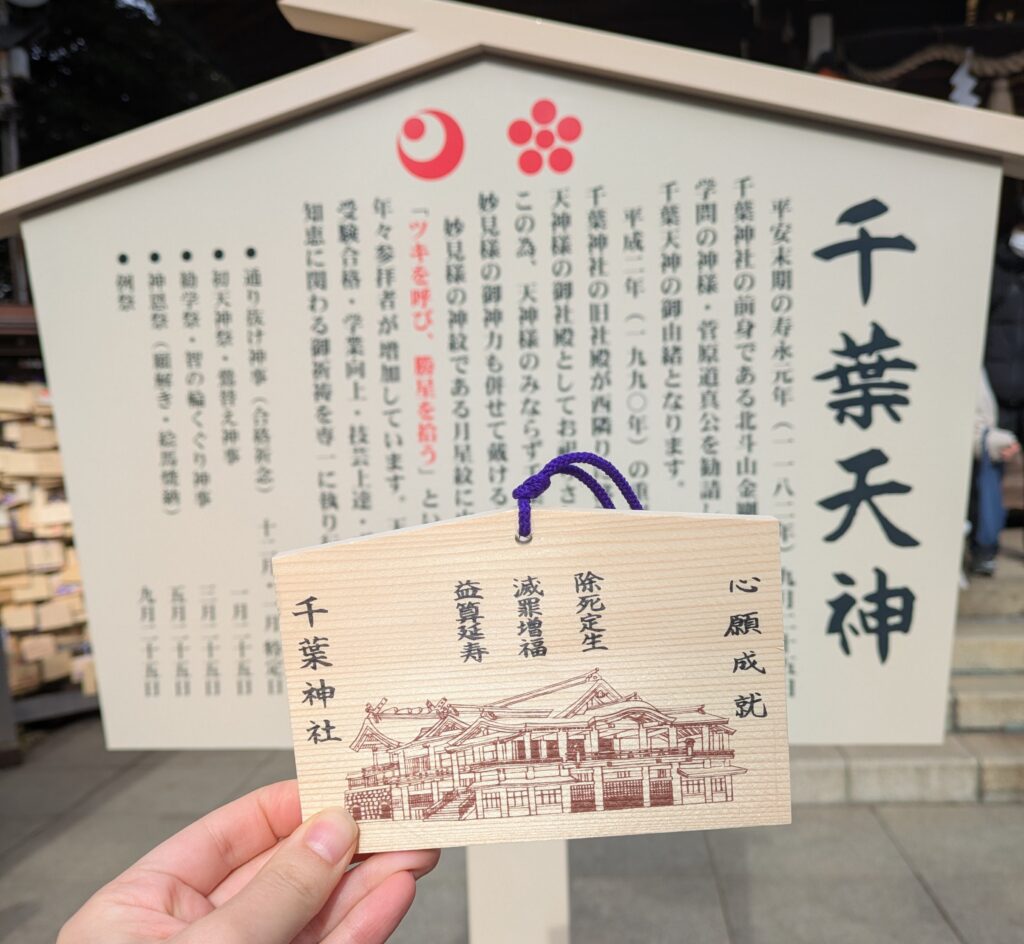 千葉天神
平安末期の寿永元年（一一八二年）九月二十五日
千葉神社の前身である北斗山金剛
学問の神様・菅原道真公を勧請し
千葉天神の御由緒となります。
平成二年（一九九〇年）の重
千葉神社の旧社殿が西隣り
天神様の御社殿としてお祀
この為、天神様のみならず
妙見様の御神力も併せて戴ける
妙見様の神紋である月星紋に
「ツキを呼び、勝星を拾う」とい
年々参拝者が増加しています。天
受験合格・学業向上・技芸上達・
知恵に関わる御祈祷を専一に執り
● 通り抜け神事（合格祈念） 十二月・二月 特定日
● 初天神祭・鷽替え神事 一月二十五日
● 勧学祭・智の輪くぐり神事 三月二十五日
● 神恩祭（願解き・絵馬焚納） 五月二十五日
● 例祭 九月二十五日
心願成就
除死定生
滅罪増福
益算延寿
千葉神社